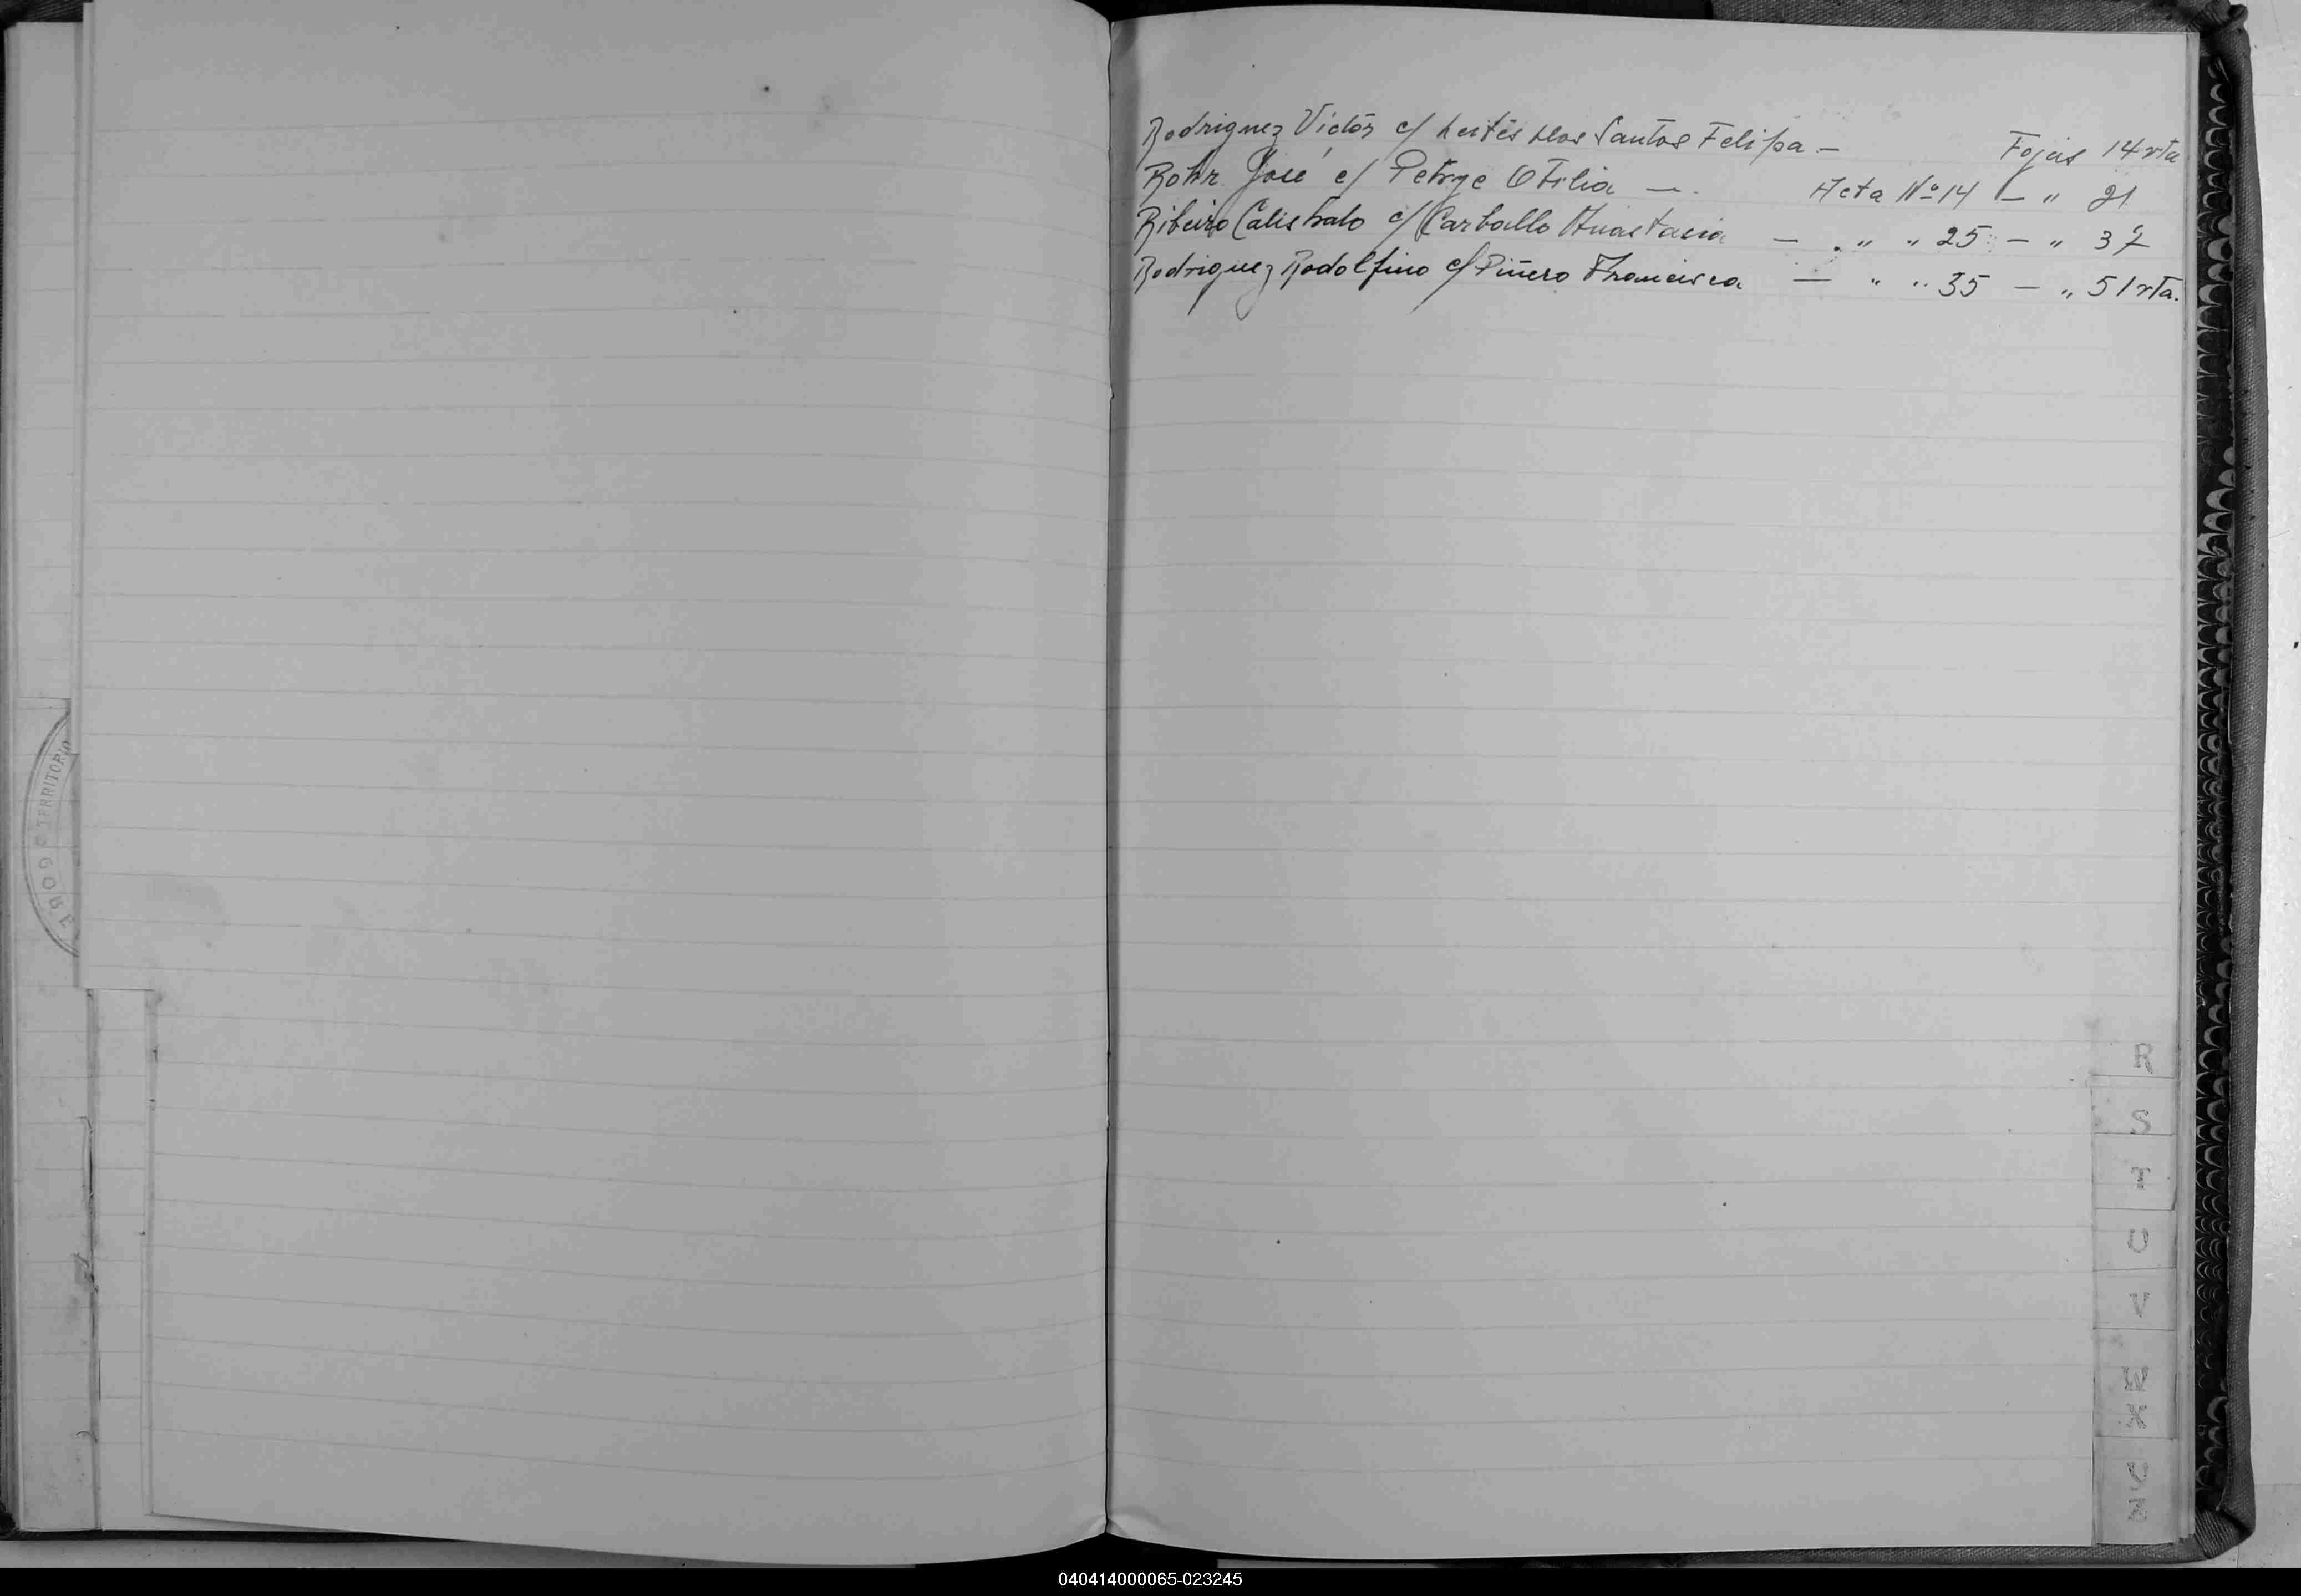 Rodriguez Victor c/ dos Santos Felipa – Fojas 14 vta
Rohr José c/ Petrye Otilia — Acta Nº 14 – " 21
Ribeiro Calistrato c/ Carballo Anastacia – " " 25 – " 37
Rodriguez Rodolfino c/ Piñero Francisca — " " 35 – " 51 vta.
TERRITORIO
GOBE
R
S
T
U
V
W
X
Y
Z
040414000065-023245